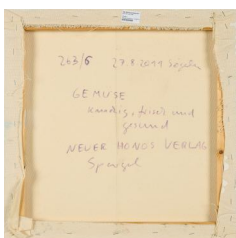 263/6 27.8.2099
GEMÜSE
knackig, frisch und
gesund
NEUER HONOS VERLAG
Spargel